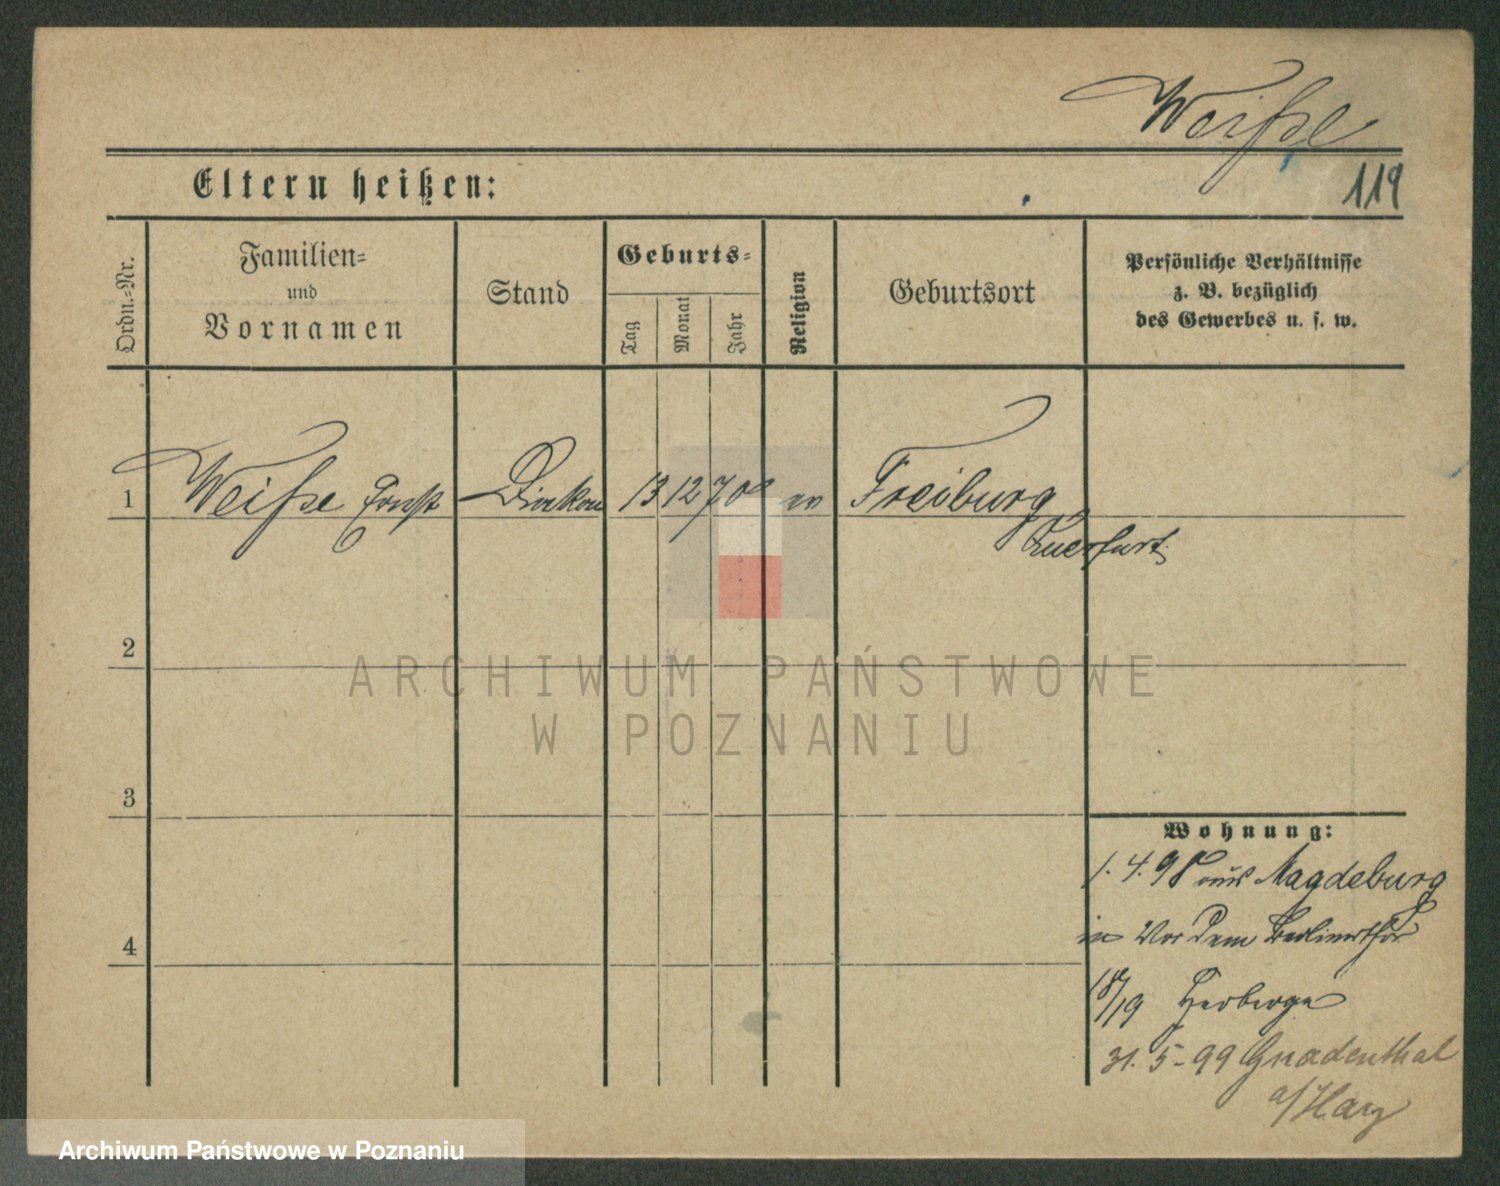 Weiße
Eltern heißen:
119
Ordn.-Nr.
Familien-
und
Vornamen
Stand
Geburts-
Tag
Monat
Jahr
Religion
Geburtsort
Persönliche Verhältnisse
z. B. bezüglich
des Gewerbes u. s. w.
1 Weiße Ernst Diakon 13 12 70 ev Freiburg
Querfurt
2
3
4
Wohnung:
1. 4. 98 aus Magdeburg
in Vor dem Berlinerthor
18/19 Herberge
31. 5. 99 Gnadenthal
a/Harz
ARCHIWUM PAŃSTWOWE
W POZNANIU
Archiwum Państwowe w Poznaniu